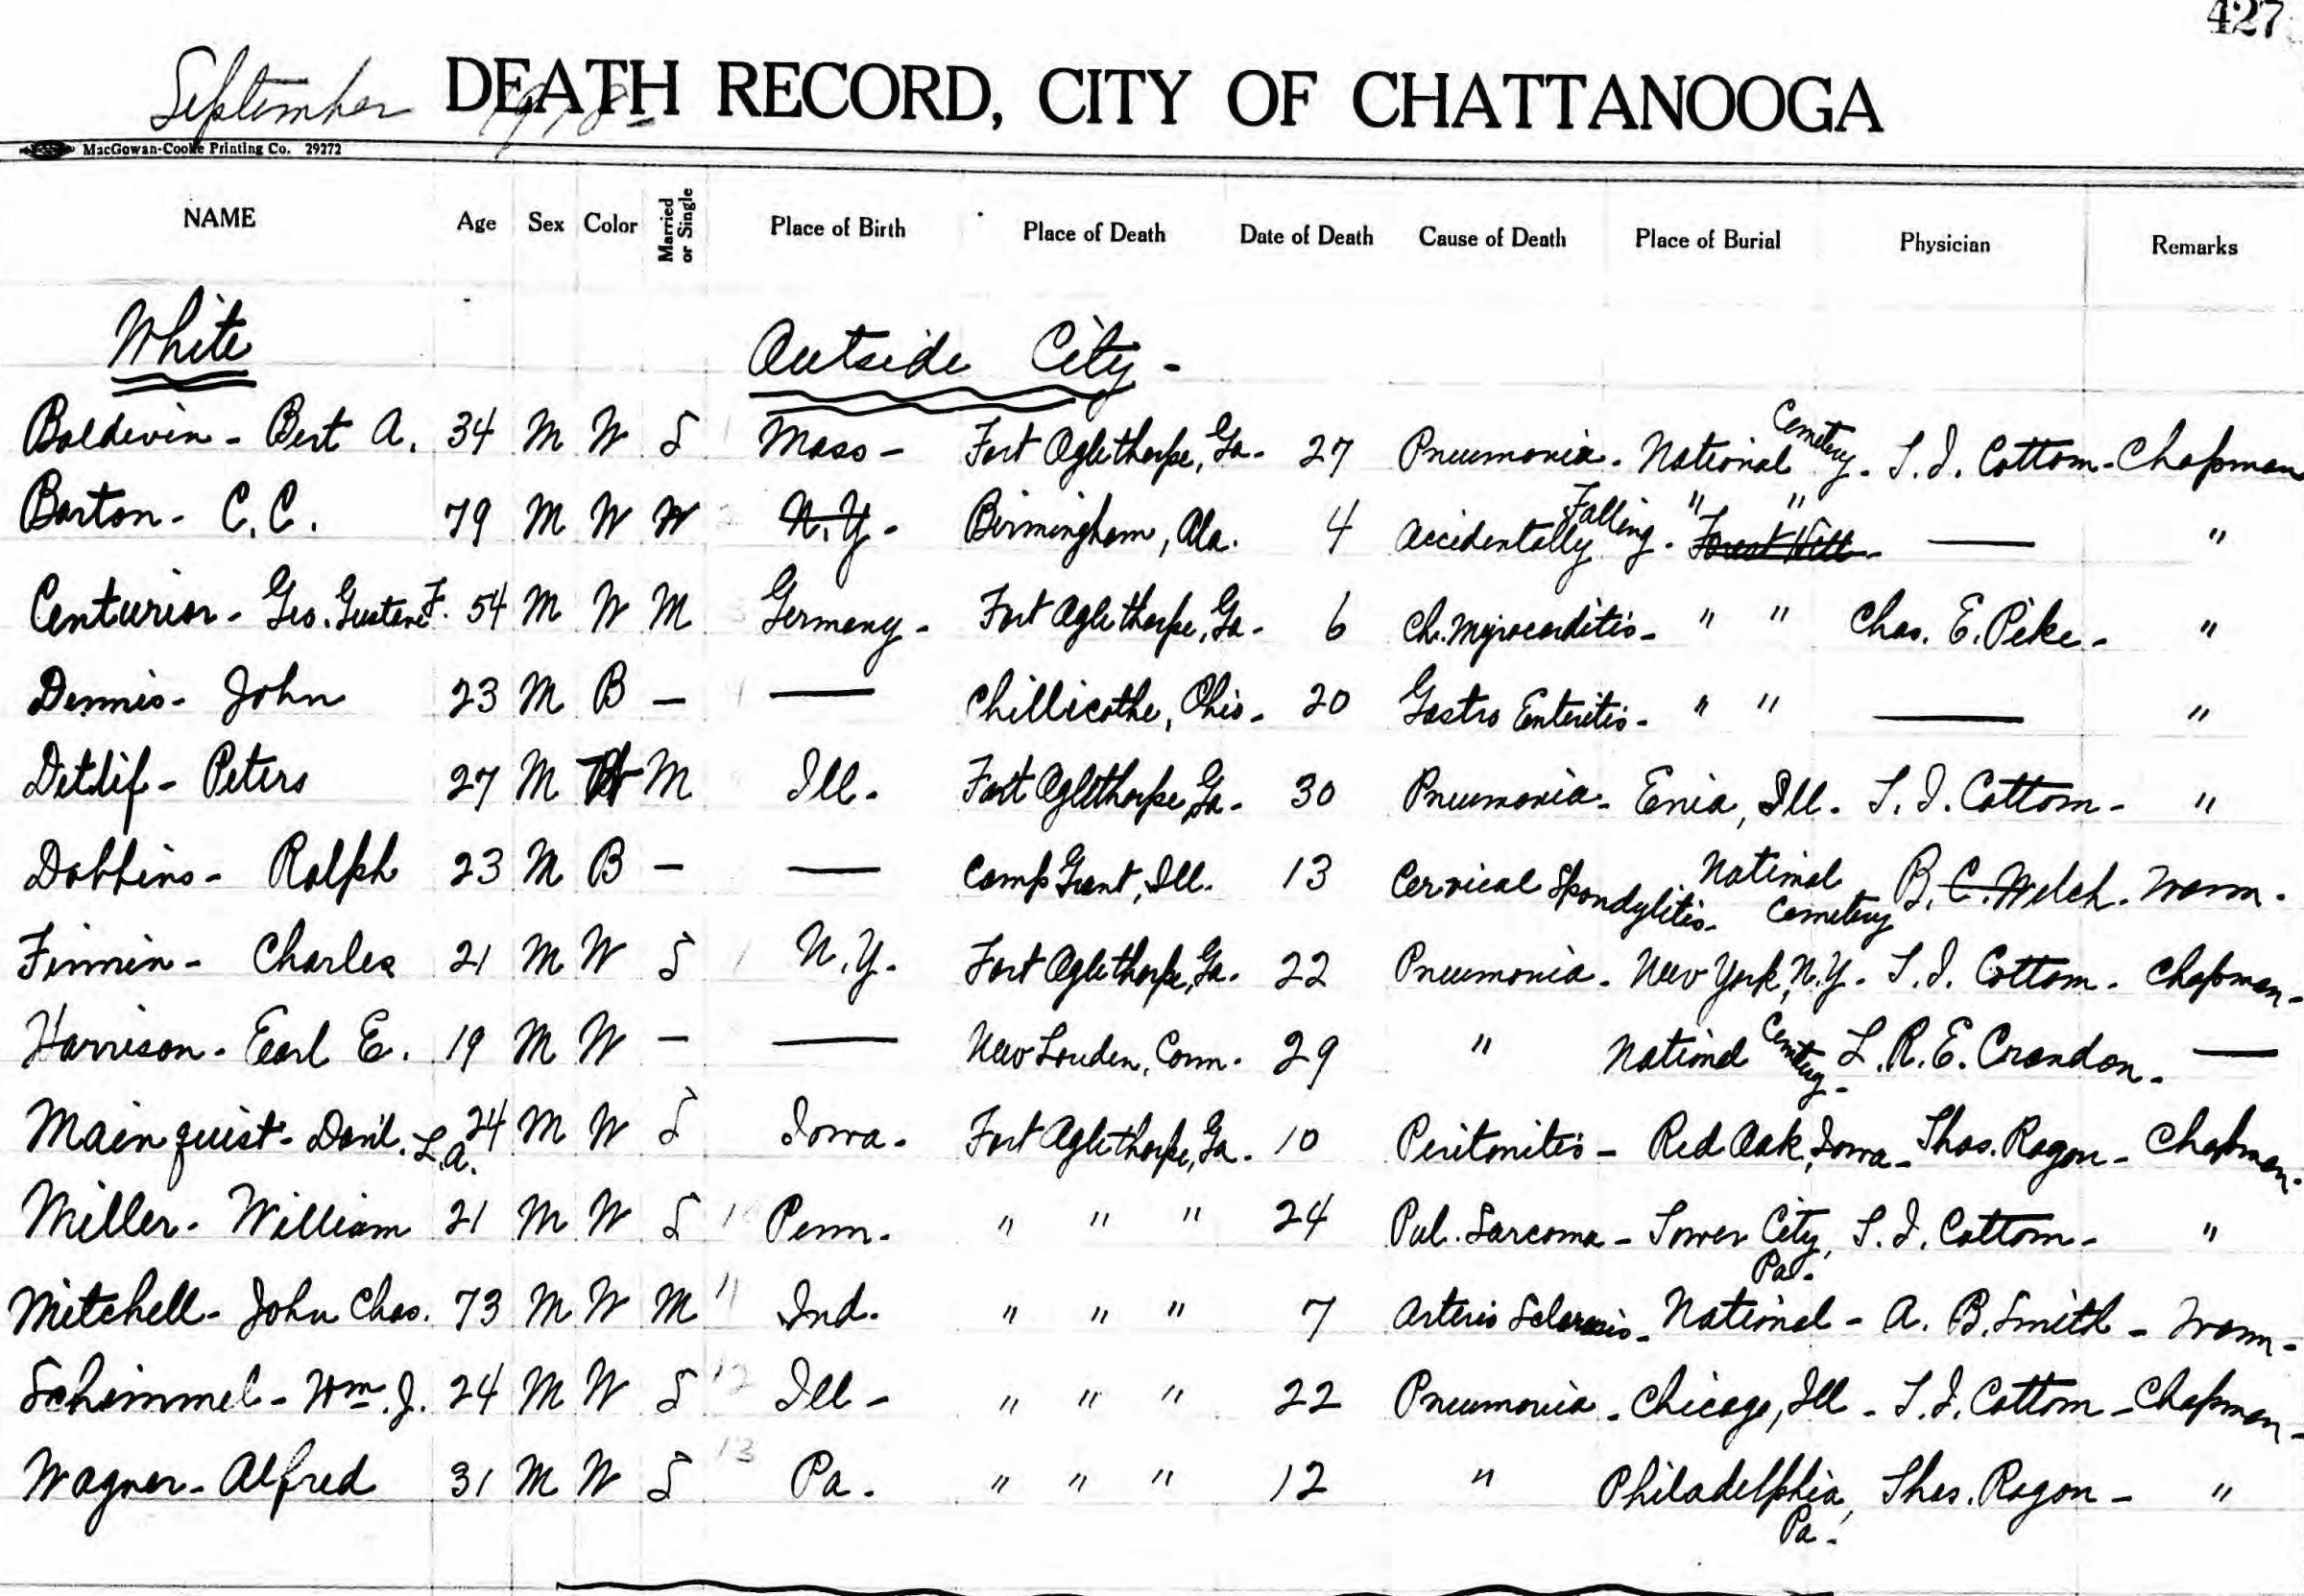 427
September 1918 DEATH RECORD, CITY OF CHATTANOOGA
MacGowan-Cooke Printing Co. 29272
NAME Age Sex Color Married or Single Place of Birth Place of Death Date of Death Cause of Death Place of Burial Physician Remarks
White Outside City -
Baldwin - Bert A. 34 M W S 1 Mass - Fort Oglethorpe, Ga. 27 Pneumonia - National Cemetery - T. I. Cottom - Chapman
Barton - C. C. 79 M W W 2 N.Y. - Birmingham, Ala. 4 Accidentally Falling - " " Forest Hill - — "
Centurier - Geo. Gustave F. 54 M W M 3 Germany - Fort Oglethorpe, Ga - 6 Ch. Myrocarditis - " " Chas. E. Pike - "
Dennis - John 23 M B — — Chillicothe, Ohio - 20 Gastro Enteritis - " " — "
Detlif - Peters 27 M W M Ill. Fort Oglethorpe Ga - 30 Pneumonia - Enia, Ill. T. I. Cottom - "
Dobbins - Ralph 23 M B — — Camp Grant, Ill. 13 Cervical Spondylitis - National Cemetery B. C. Welch - Wann -
Finnin - Charles 21 M W S N.Y. - Fort Oglethorpe, Ga. 22 Pneumonia - New York, N.Y. - T. I. Cottom - Chapman -
Harrison - Earl E. 19 M W — — New Louden, Conn. 29 " National Cemetery - L. R. E. Crandon - —
Mainquist - Davil. L.A. 24 M W S Iowa - Fort Oglethorpe, Ga. 10 Peritonitis - Red Oak, Iowa - Thos. Ragon - Chapman -
Miller - William 21 M W S Penn. " " " 24 Pul. Sarcoma - Tower City, Pa. T. I. Cottom - "
Mitchell - John Chas. 73 M W M 11 Ind. " " " 7 Arterio Sclerosis - National - A. B. Smith - Wann -
Schimmel - Wm. J. 24 M W S 12 Ill - " " " 22 Pneumonia - Chicago, Ill - T. I. Cottom - Chapman -
Wagner - Alfred 31 M W S 13 Pa. " " " 12 " Philadelphia, Pa. Thos. Ragon - "